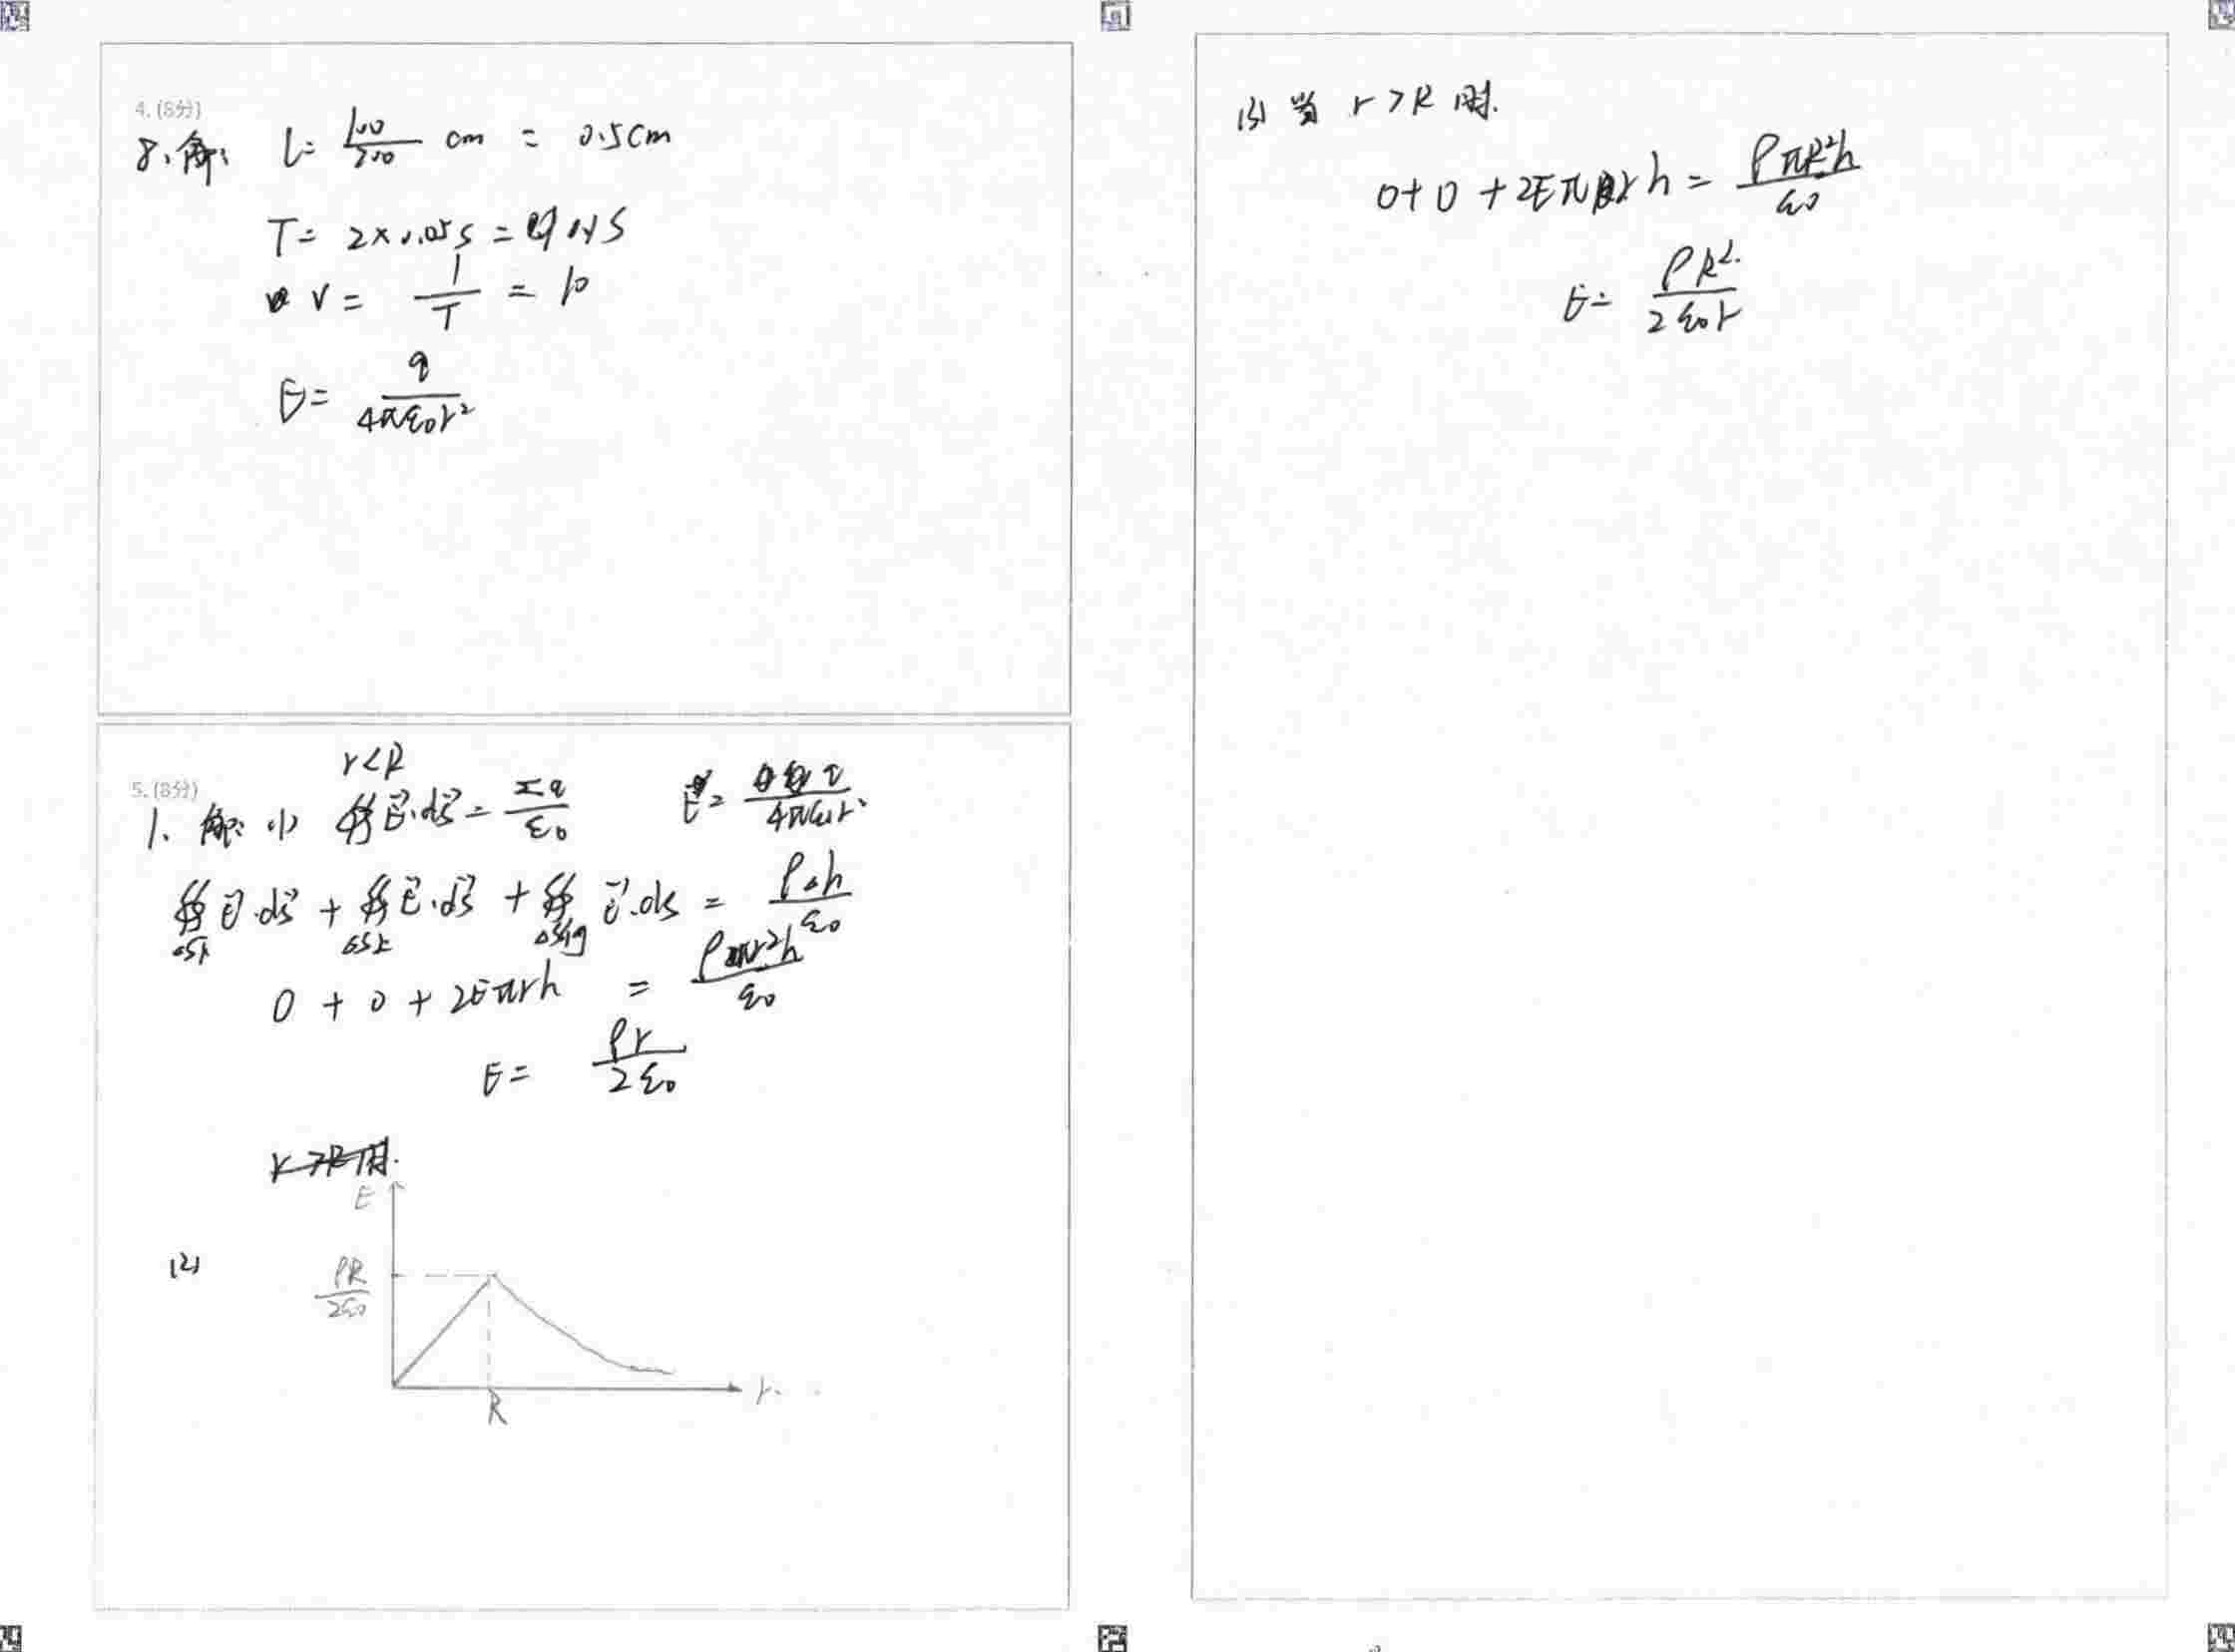 4. (8分)
8、解: l = \frac{100}{200} cm = 0.5cm
T = 2×0.05s = 0.1s
v = \frac{1}{T} = 10
E = \frac{q}{4πε₀r²}
5. (8分)
r<R
1、解: (1) ∯E⃗·dS⃗ = \frac{Σq}{ε₀}
E = \frac{}{4πε₀r²}
∯E⃗·dS⃗ + ∯E⃗·dS⃗ + ∯E⃗·dS = \frac{ρ h}{ε₀}
0 + 0 + 2Eπrh = \frac{ρπr²h}{ε₀}
E = \frac{ρr}{2ε₀}
r>R时.
E
(2) \frac{ρR}{2ε₀}
r.
R
(3) 当 r>R 时.
0+0+2Eπrh = \frac{ρπR²h}{ε₀}
E = \frac{ρR²}{2ε₀r}